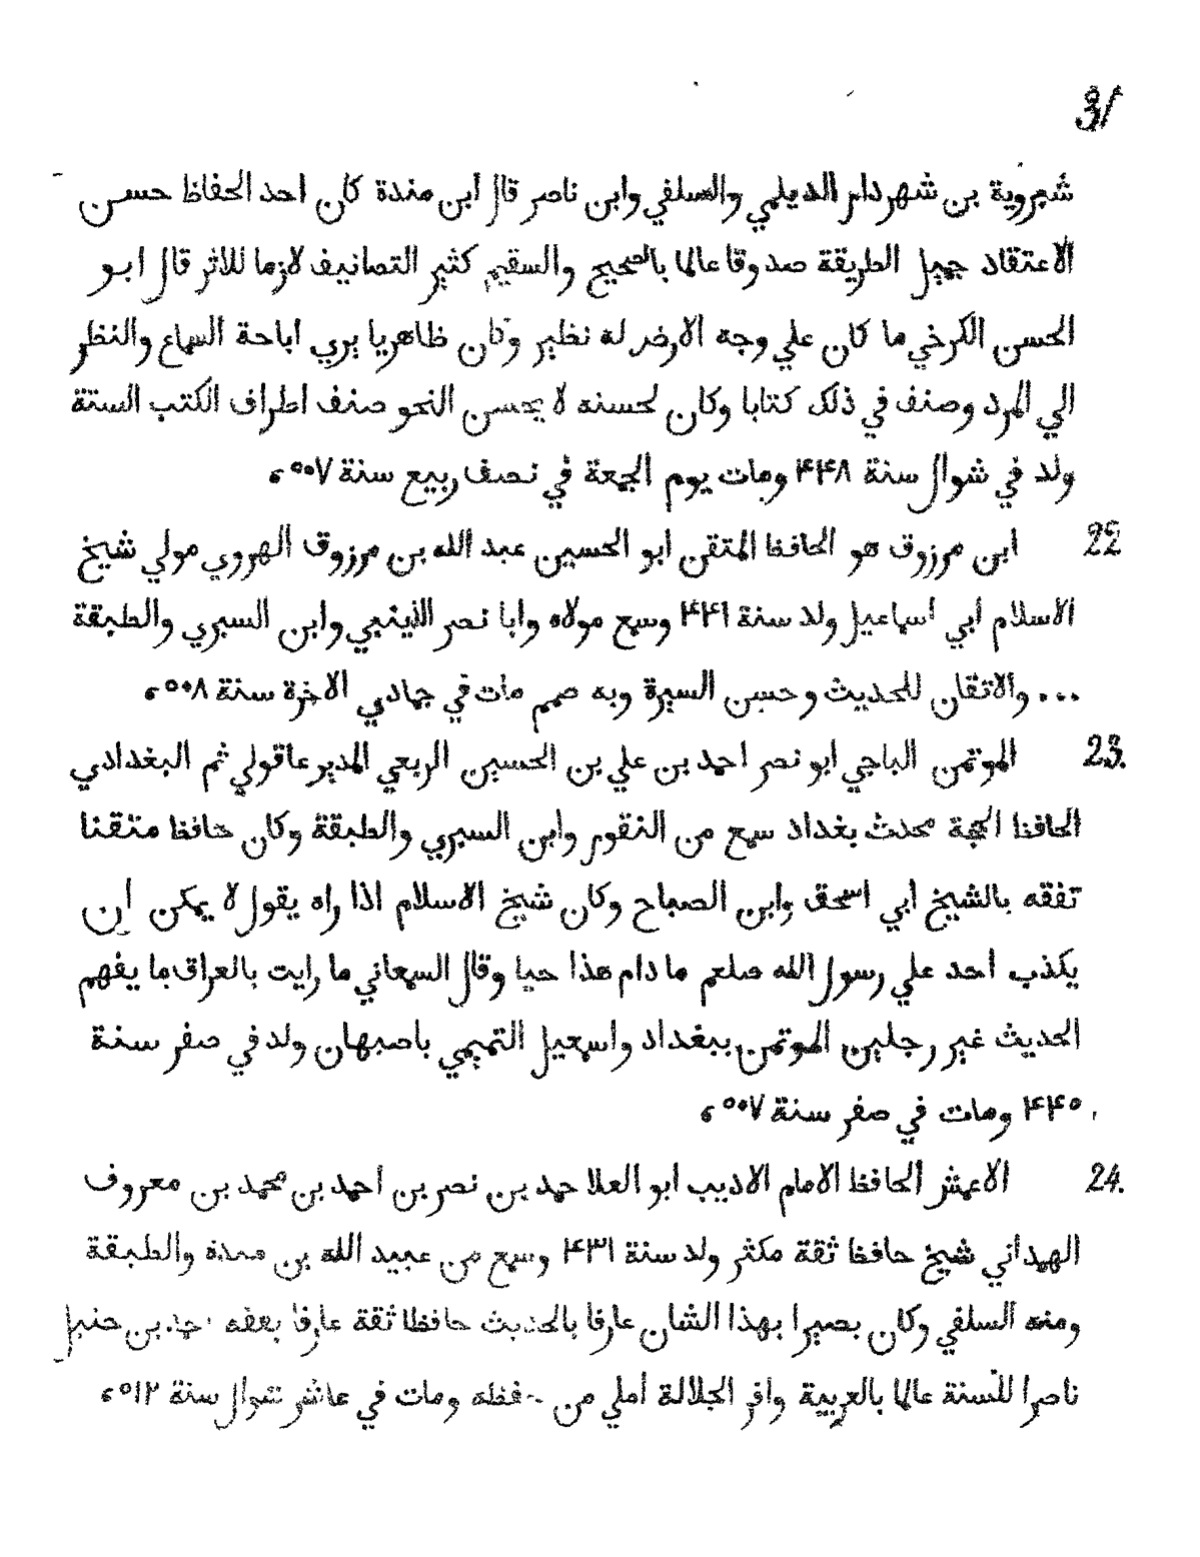 31
شيروية بن شهردار الديلمي والسلفي وابن ناصر قال ابن مندة كان احد الحفاظ حسن
الاعتقاد جميل الطريقة صدوقا عالما بالصحيح والسقيم كثير التصانيف لازما للاثر قال ابو
الحسن الكرخي ما كان علي وجه الارض له نظير وكان ظاهريا يري اباحة السماع والنظر
الي المرد وصنف في ذلك كتابا وكان لحسنه لا يحسن النحو صنف اطراف الكتب الستة
ولد في شوال سنة ۴۴۸ ومات يوم الجمعة في نصف ربيع سنة ۵۰۷ ء
22 ابن مرزوق هو الحافظ المتقن ابو الحسين عبد الله بن مرزوق الهروي مولي شيخ
الاسلام ابي اسماعيل ولد سنة ۴۴۱ وسمع مولاه وابا نصر الذينبي وابن السبري والطبقة
... والاتقان للحديث وحسن السيرة وبه صمم مات في جمادي الاخرة سنة ۵۰۸ ء
23. الموتمن الباجي ابو نصر احمد بن علي بن الحسين الربعي المدير عاقولي ثم البغدادي
الحافظ الحجة محدث بغداد سمع من النقور وابن السبري والطبقة وكان حافظا متقنا
تفقه بالشيخ ابي اسحق وابن الصباح وكان شيخ الاسلام اذا راه يقول لا يمكن ان
يكذب احد علي رسول الله صلعم ما دام هذا حيا وقال السمعاني ما رايت بالعراق ما يفهم
الحديث غير رجلين الموتمن ببغداد واسمعيل التميمي باصبهان ولد في صفر سنة
۴۴۵ ومات في صفر سنة ۵۰۷ ء
24. الاعمش الحافظ الامام الاديب ابو العلا حمد بن نصر بن احمد بن محمد بن معروف
الهمداني شيخ حافظ ثقة مكثر ولد سنة ۴۳۱ وسمع من عبيد الله بن مندة والطبقة
ومنه السلفي وكان بصيرا بهذا الشان عارفا بالحديث حافظا ثقة عارفا بفقه بن حنبل
ناصرا للسنة عالما بالعربية وافر الجلالة املي من ومات في عاشر شوال سنة ۵۱۲ ء